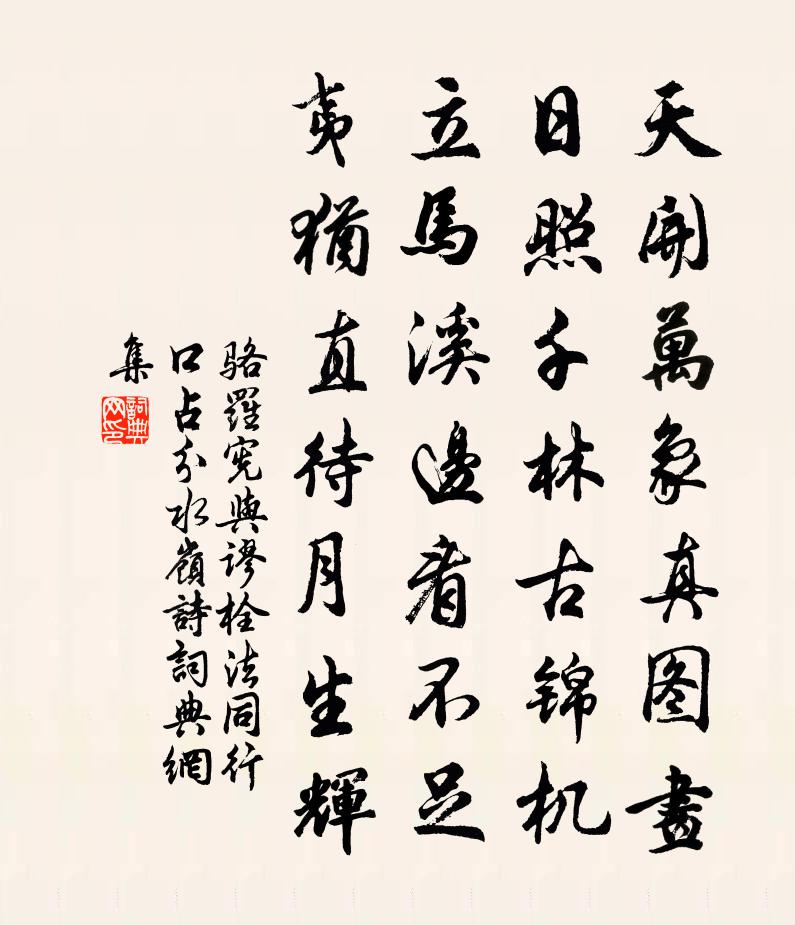 天開萬象真图畫
日照千林古锦机
立馬溪邊看不足
夷猶直待月生輝
骆羅宪與谬栓法同行
口占分水嶺詩詞典網
集
詞典网印